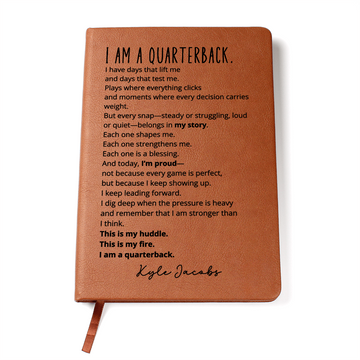 I AM A QUARTERBACK.
I have days that lift me
and days that test me.
Plays where everything clicks
and moments where every decision carries
weight.
But every snap—steady or struggling, loud
or quiet—belongs in my story.
Each one shapes me.
Each one strengthens me.
Each one is a blessing.
And today, I'm proud—
not because every game is perfect,
but because I keep showing up.
I keep leading forward.
I dig deep when the pressure is heavy
and remember that I am stronger than
I think.
This is my huddle.
This is my fire.
I am a quarterback.
Kyle Jacobs